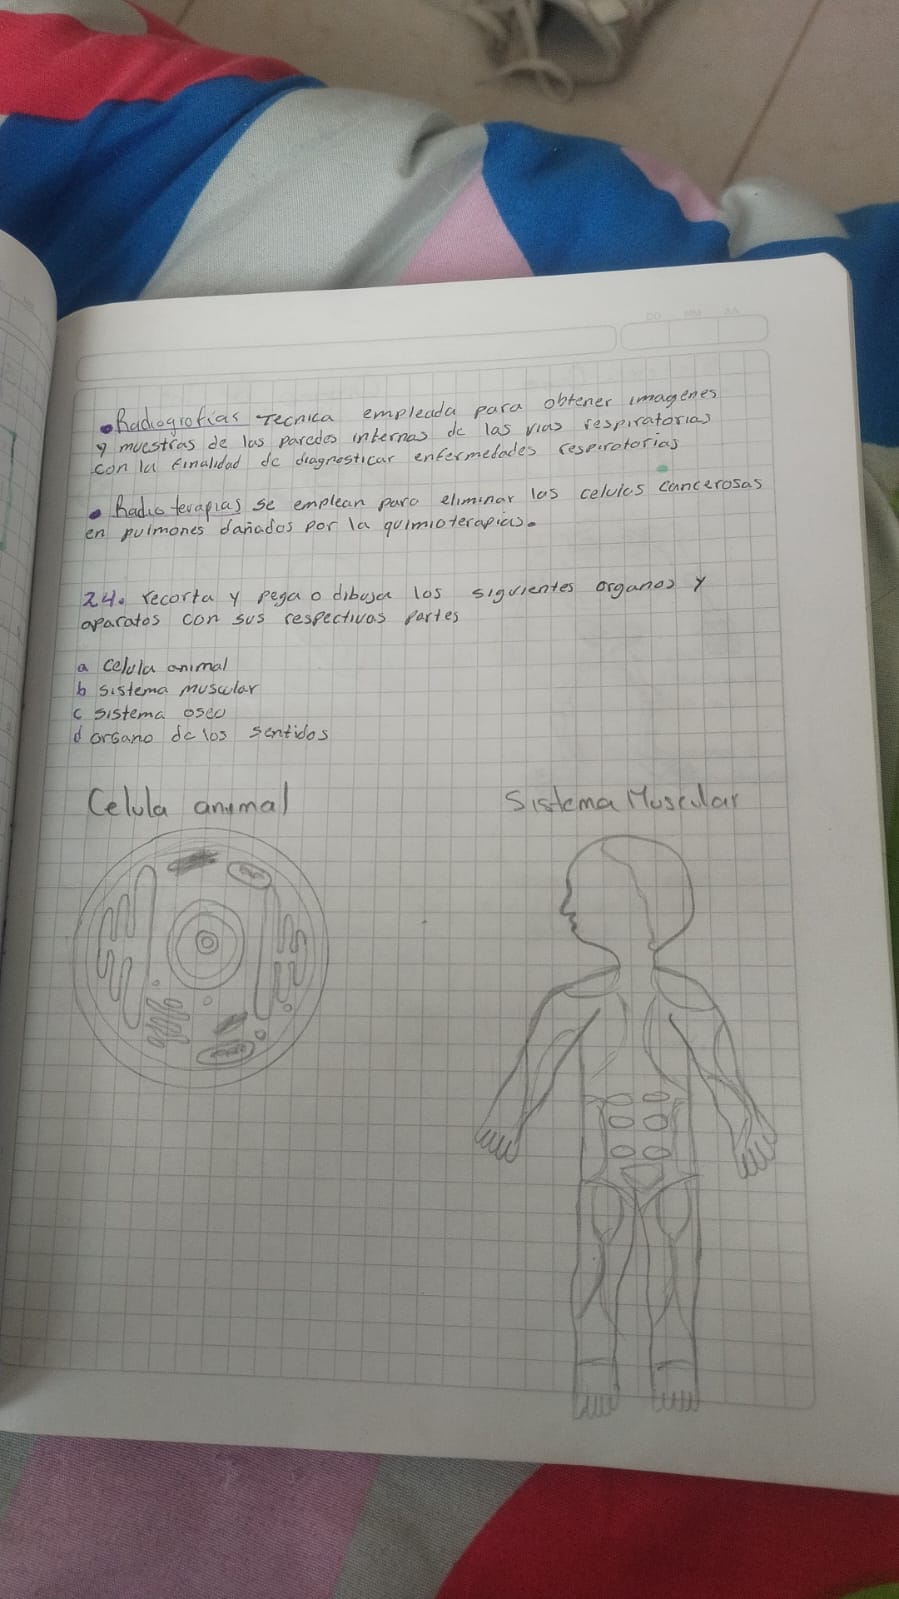 DD MM AA
• Radiografias Tecnica empleada para obtener imagenes
y muestras de las paredes internas de las vias respiratorias
con la finalidad de diagnosticar enfermedades respiratorias
• Radio terapias se emplean para eliminar las celulas cancerosas
en pulmones dañados por la quimioterapias.
24. recorta y pega o dibuja los siguientes organos y
aparatos con sus respectivas partes
a celula animal
b sistema muscular
c sistema oseo
d organo de los sentidos
Celula animal
Sistema Muscular